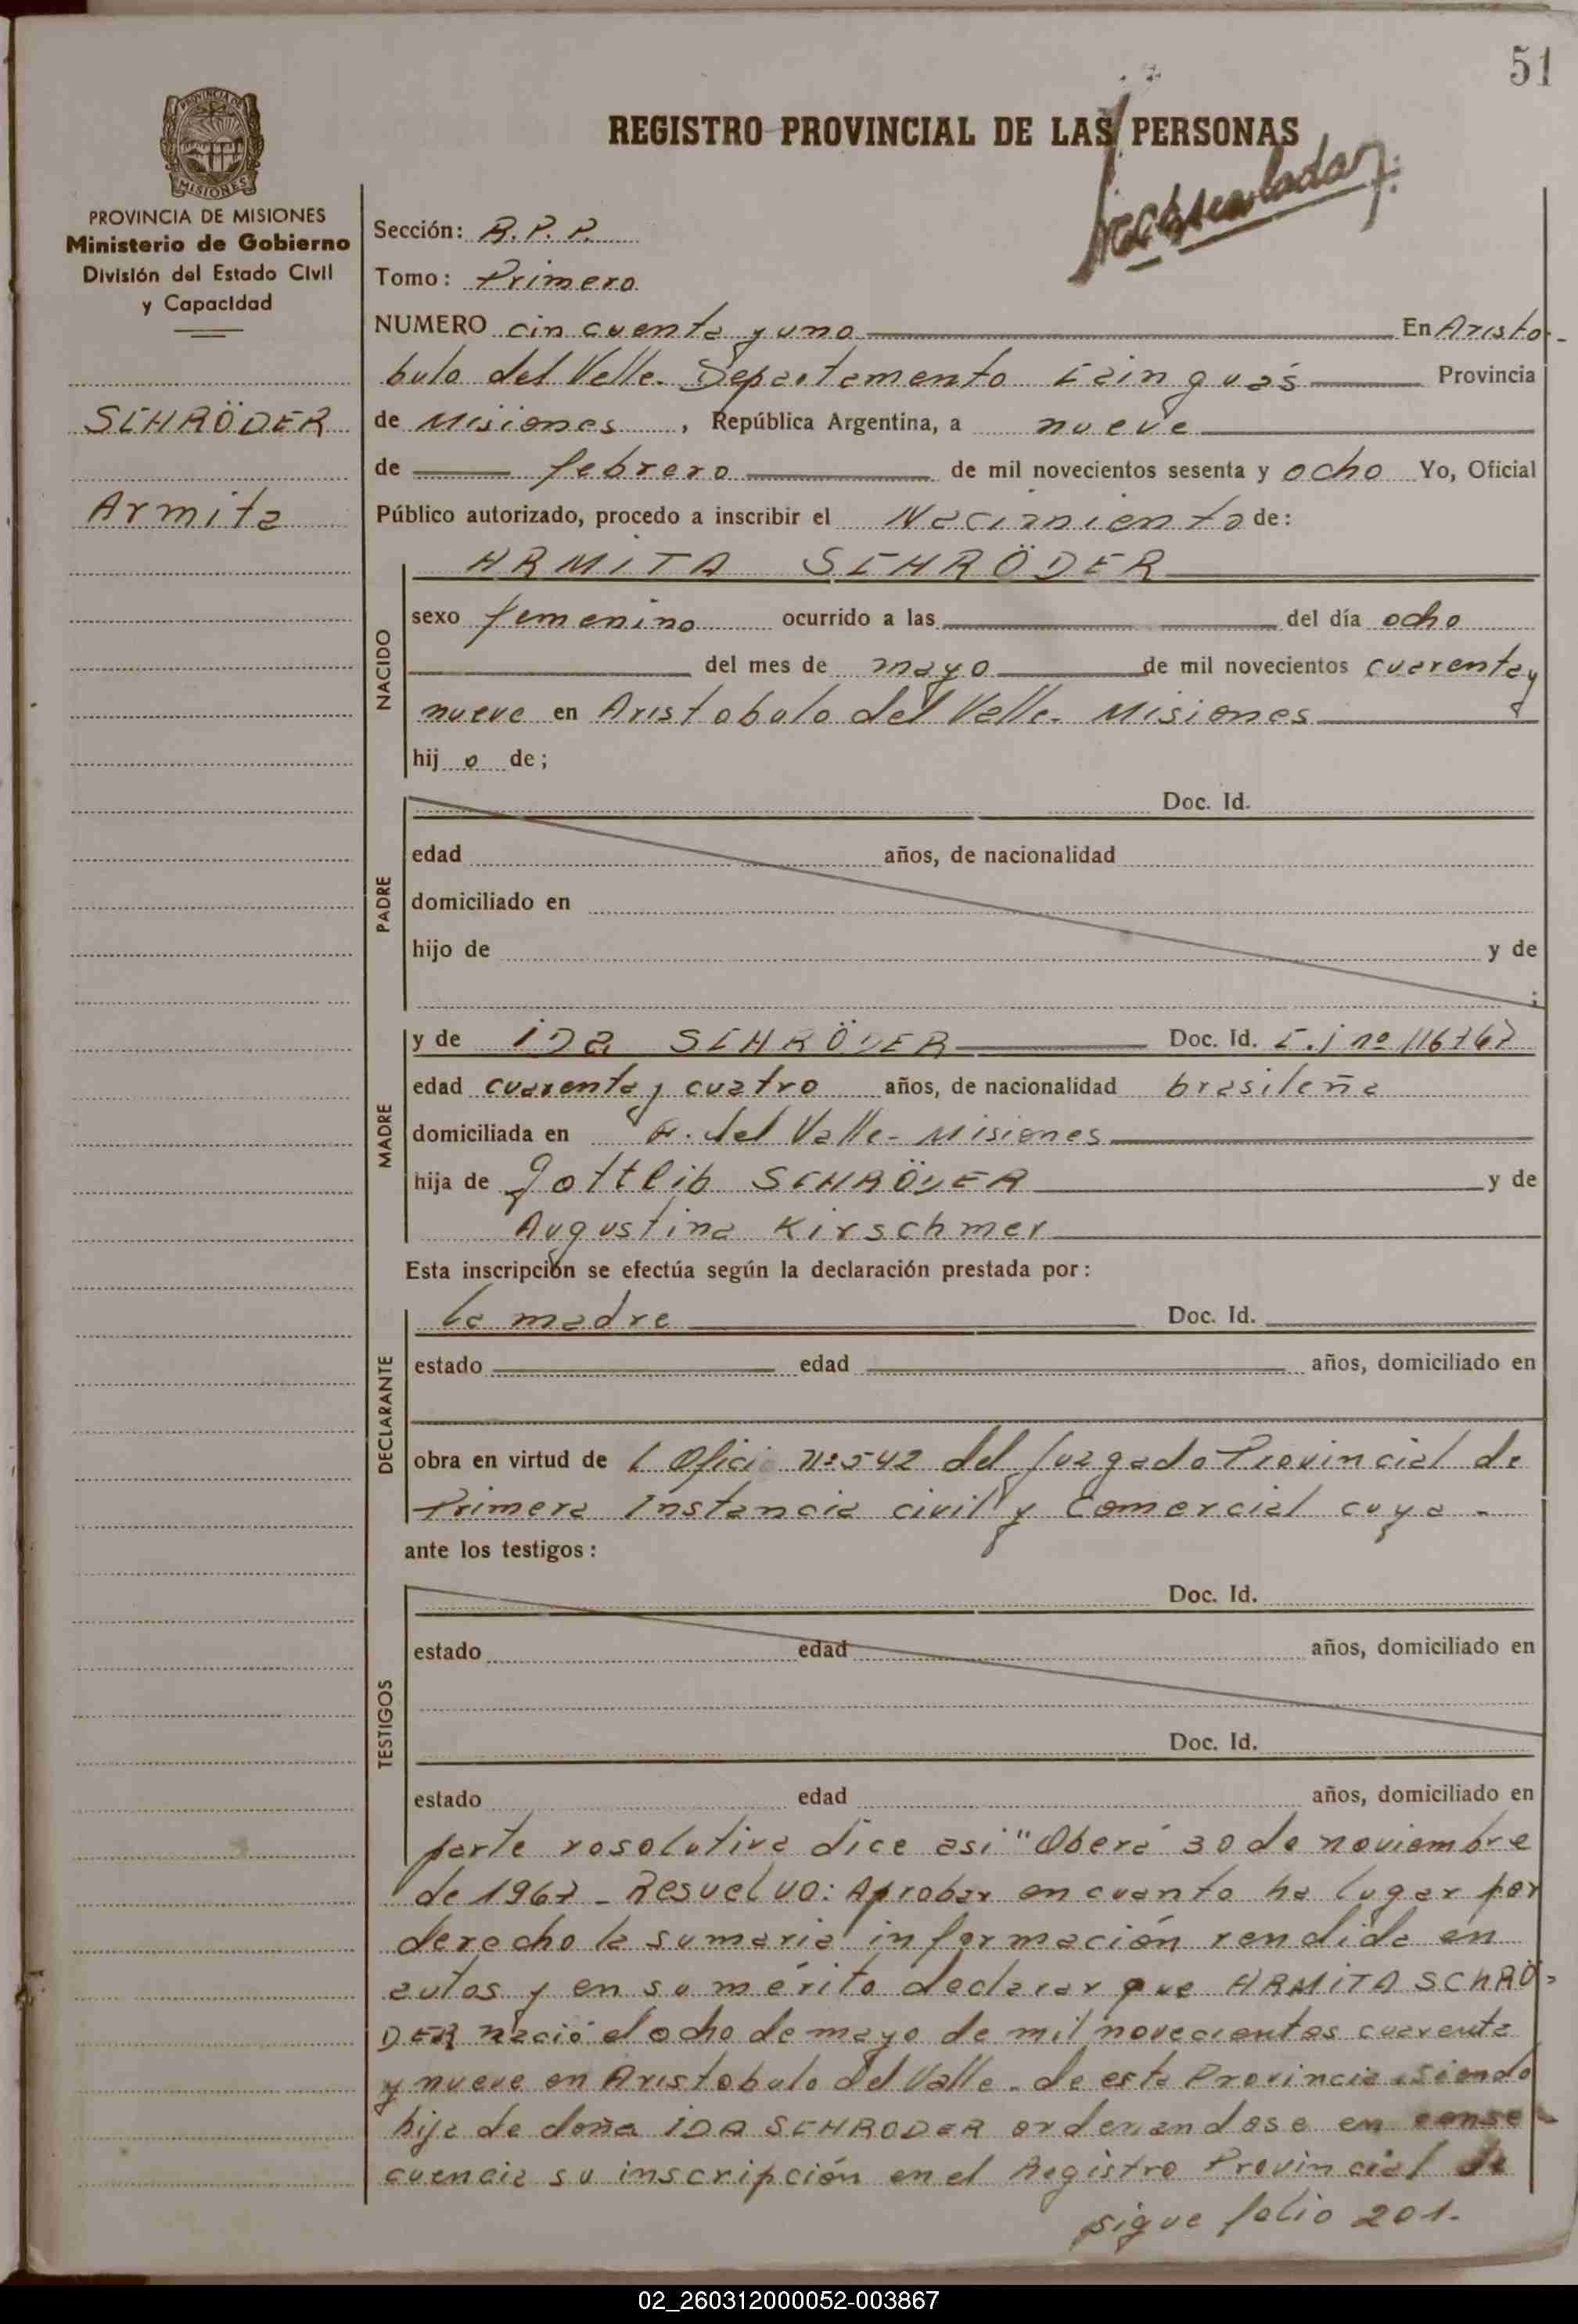 51
PROVINCIA DE MISIONES
PROVINCIA DE MISIONES
Ministerio de Gobierno
División del Estado Civil
y Capacidad
SCHRÖDER
Armita
REGISTRO PROVINCIAL DE LAS PERSONAS
Sección: R.P.P.
Tomo: Primero
NUMERO cincuenta y uno En Aristo-
bulo del Valle. Departamento Cainguás Provincia
de Misiones, República Argentina, a nueve
de febrero de mil novecientos sesenta y ocho Yo, Oficial
Público autorizado, procedo a inscribir el Nacimiento de:
NACIDO
ARMITA SCHRÖDER
sexo femenino ocurrido a las del día ocho
del mes de mayo de mil novecientos cuarenta y
nueve en Aristobulo del Valle. Misiones
hij o de;
PADRE
Doc. Id.
edad años, de nacionalidad
domiciliado en
hijo de y de
;
MADRE
y de IDA SCHRÖDER Doc. Id. C.I nº 116767
edad cuarenta y cuatro años, de nacionalidad brasileña
domiciliada en A. del Valle - Misiones
hija de Gottlib SCHRÖDER y de
Augustina Kirschmer
Esta inscripción se efectúa según la declaración prestada por:
DECLARANTE
la madre Doc. Id.
estado edad años, domiciliado en
obra en virtud de l Oficio nº 542 del Juzgado Provincial de
Primera Instancia civil y Comercial cuya -
ante los testigos:
TESTIGOS
Doc. Id.
estado edad años, domiciliado en
Doc. Id.
estado edad años, domiciliado en
parte rosolutiva dice asi "Oberá 30 de noviembre
de 1967 - Resuelvo: Aprobar en cuanto ha lugar por
derecho la sumaria información rendida en
autos y en su mérito declarar que ARMITA SCHRÖ-
DER nació el ocho de mayo de mil novecientos cuarenta
y nueve en Aristobulo del Valle - de esta Provincia siendo
hija de doña IDA SCHRODER ordenandose en conse-
cuencia su inscripción en el Registro Provincial de
sigue folio 201.
02_260312000052-003867